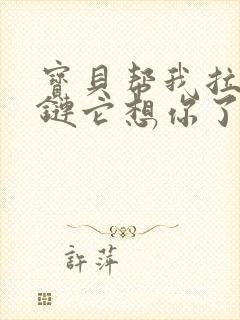 寶貝帮我拉
鏈它想你了
許萍